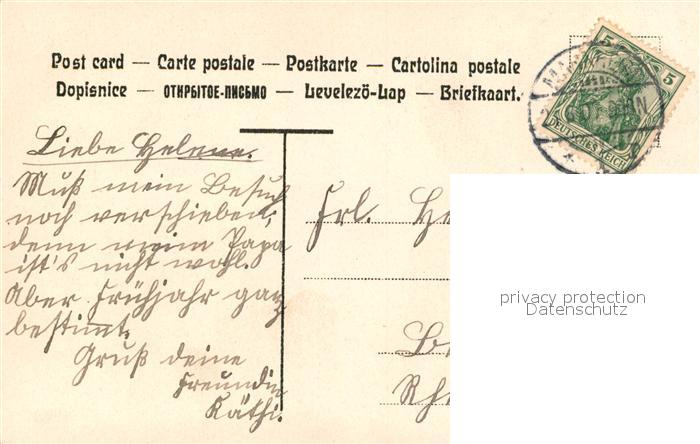 Post card — Carte postale — Postkarte — Cartolina postale
Dopisnice — ОТКРЫТОЕ-ПИСЬМО — Levelezö-Lap — Briefkaart.
5 5
DEUTSCHES REICH
Liebe Helene.
Muß mein Besuch
noch verschieben,
denn meim Papa
ist's nicht wohl.
Aber Frühjahr ganz
bestimmt.
Gruß deine
Freundin
Käthi.
Frl. He
Rh
privacy protection
Datenschutz